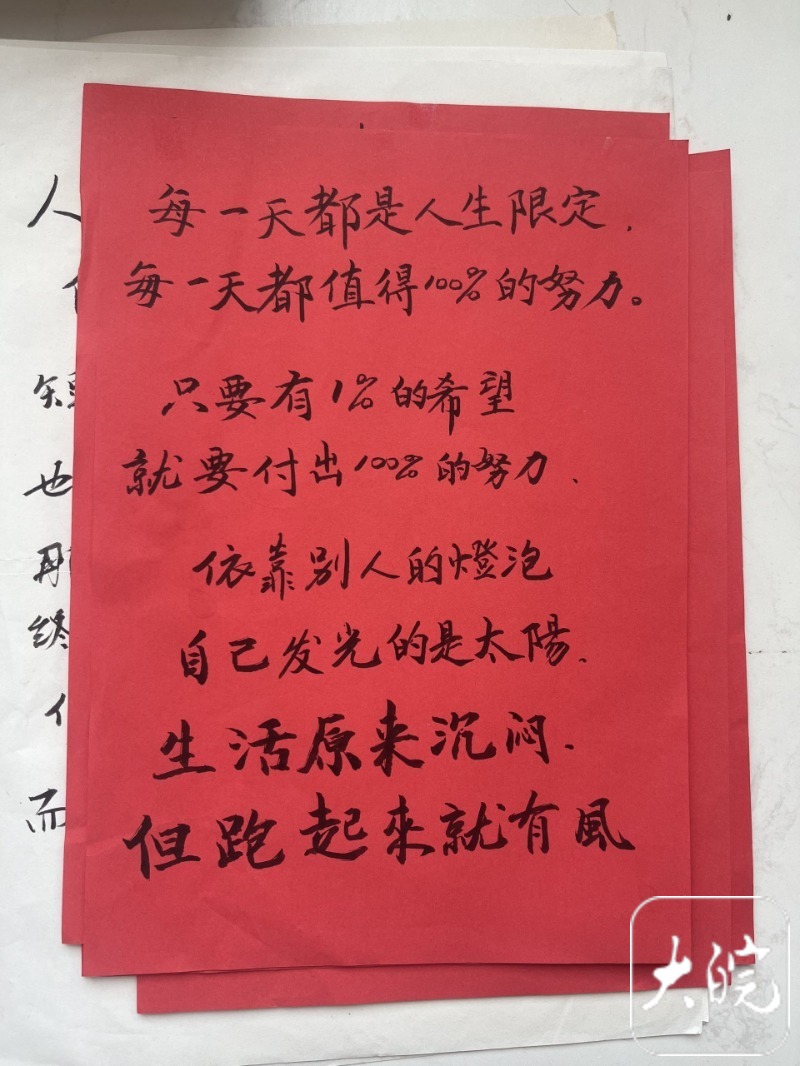 每一天都是人生限定.
每一天都值得100%的努力。
只要有1%的希望
就要付出100%的努力、
依靠别人的燈泡
自己发光的是太陽.
生活原来沉闷.
但跑起來就有風
人
也
而
大皖